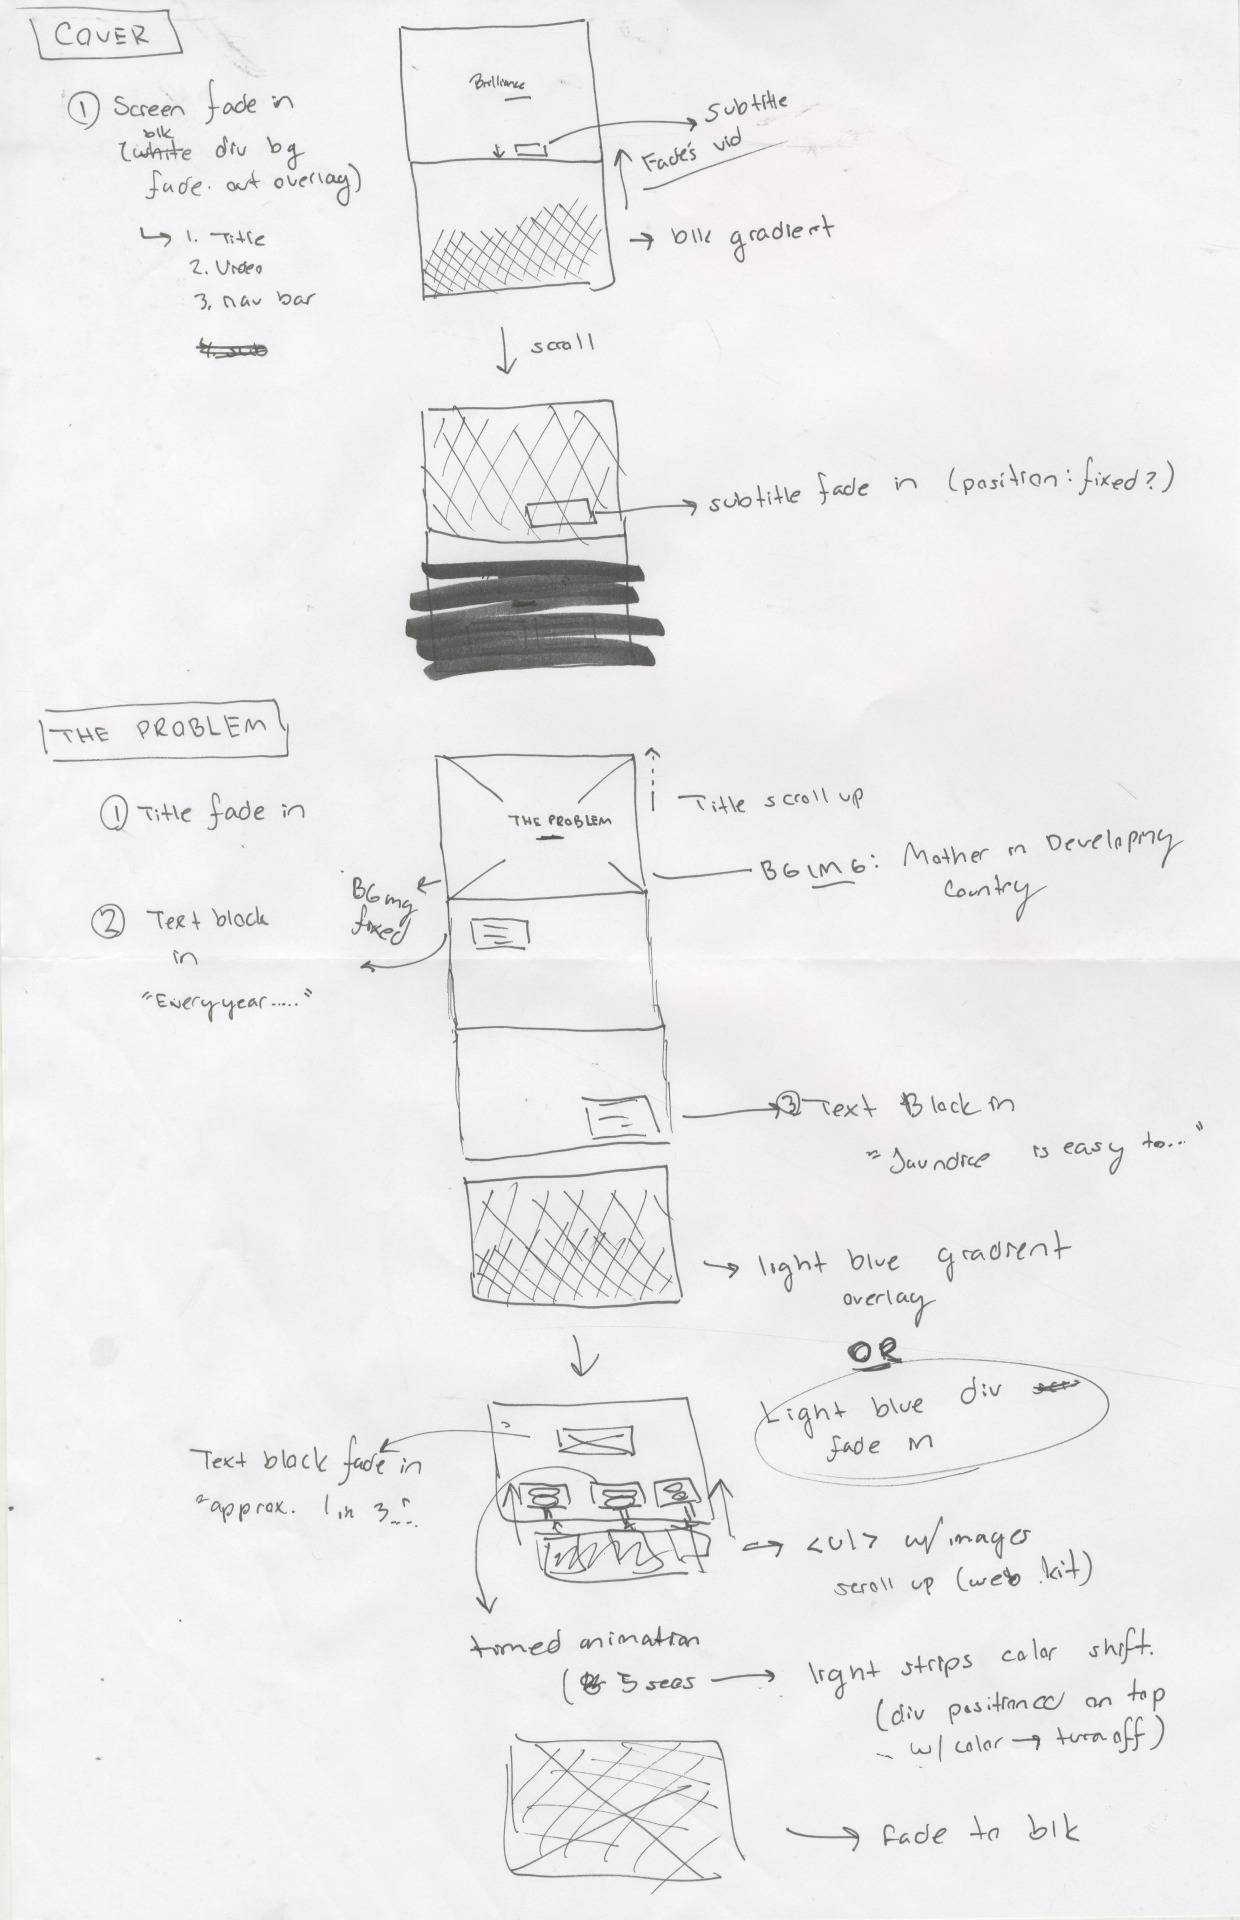 COVER
① Screen fade in
blk
(white div bg
fade out overlay)
↳ 1. Title
2. Video
3. nav bar
4. sub
Brilliance
subtitle
Fade's vid
→ blk gradient
scroll
subtitle fade in (position: fixed?)
THE PROBLEM
① Title fade in
② Text block
in
"Every year....."
BG img
fixed
THE PROBLEM
Title scroll up
BG IMG: Mother in Developing
Country
③ Text Block in
"Jaundice is easy to..."
→ light blue gradient
overlay
OR
Light blue div
fade in
Text block fade in
"approx. 1 in 3..."
→ <ul> w/ images
scroll up (web kit)
timed animation
( 5 secs → light strips color shift.
(div positioned on top
w/ color → turn off)
→ fade to blk